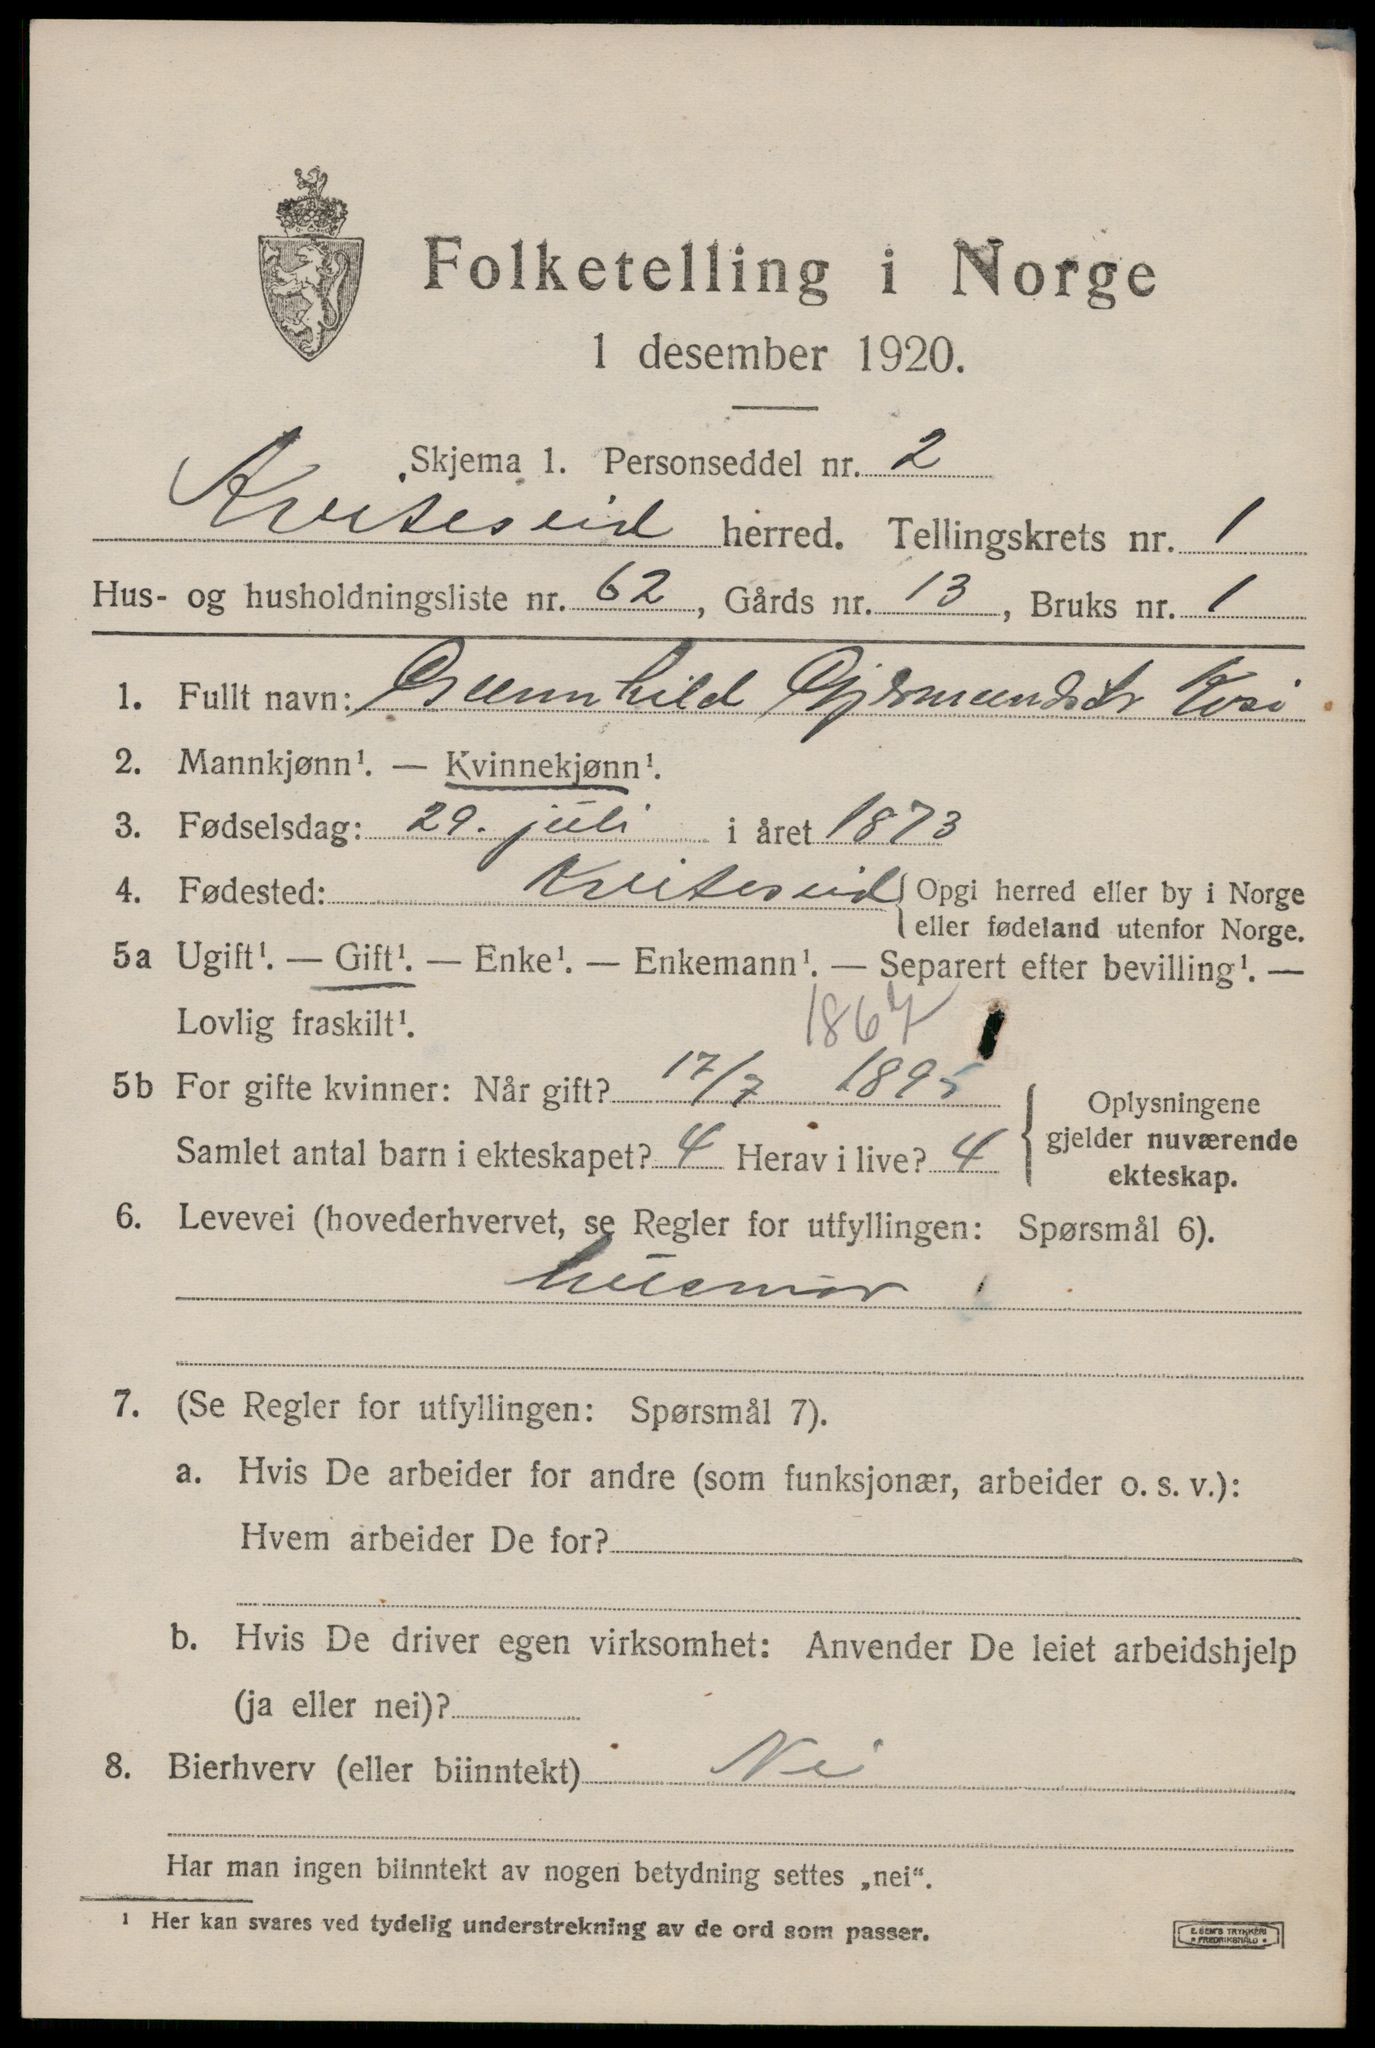 Folketelling i Norge
1 desember 1920.
Skjema 1. Personseddel nr. 2
Kviteseid herred. Tellingskrets nr. 1
Hus- og husholdningsliste nr. 62, Gårds nr. 13, Bruks nr. 1
1. Fullt navn: Gunnhild Gjermundsdtr
2. Mannkjønn¹. — Kvinnekjønn¹.
3. Fødselsdag: 29. juli i året 1873
4. Fødested: Kviteseid { Opgi herred eller by i Norge
eller fødeland utenfor Norge.
5a Ugift¹. — Gift¹. — Enke¹. — Enkemann¹. — Separert efter bevilling¹. —
Lovlig fraskilt¹.
1867
5b For gifte kvinner: Når gift? 17/7 1895
Samlet antal barn i ekteskapet? 4 Herav i live? 4
{ Oplysningene
gjelder nuværende
ekteskap.
6. Levevei (hovederhvervet, se Regler for utfyllingen: Spørsmål 6).
husmor
7. (Se Regler for utfyllingen: Spørsmål 7).
a. Hvis De arbeider for andre (som funksjonær, arbeider o. s. v.):
Hvem arbeider De for?
b. Hvis De driver egen virksomhet: Anvender De leiet arbeidshjelp
(ja eller nei)?
8. Bierhverv (eller biinntekt) Nei
Har man ingen biinntekt av nogen betydning settes „nei“.
¹ Her kan svares ved tydelig understrekning av de ord som passer.
E. SEM'S TRYKKERI
• FREDRIKSHALD •